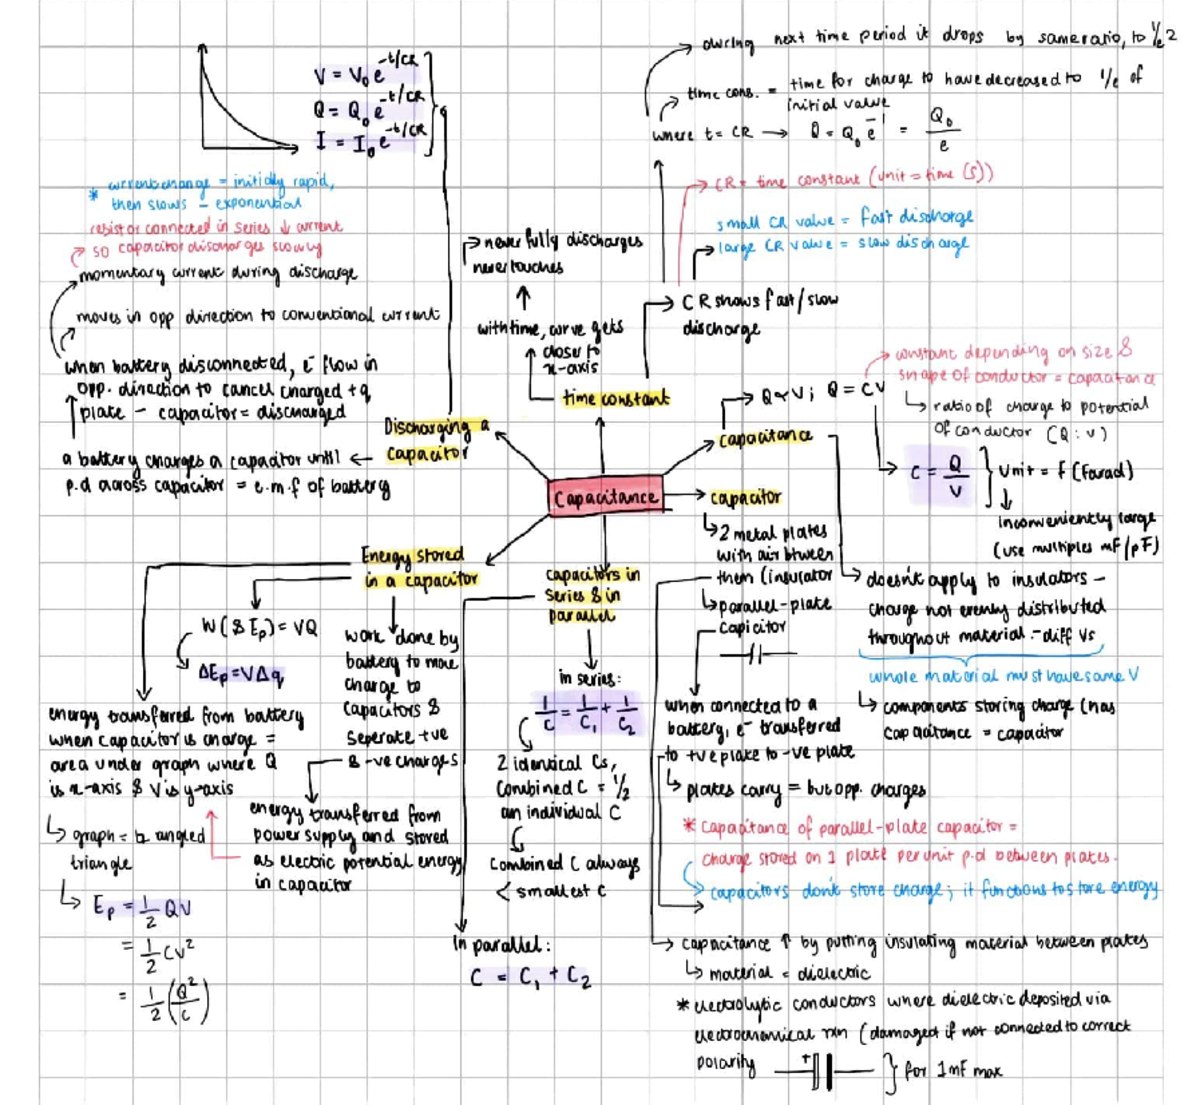 V = V₀e^-t/CR
Q = Q₀e^-t/CR
I = I₀e^-t/CR
* current change = initially rapid,
then slows – exponential
resistor connected in series ↓ current
so capacitor discharges slowly
momentary current during discharge
moves in opp direction to conventional current
when battery disconnected, e⁻ flow in
opp. direction to cancel charged +q
plate – capacitor = discharged
a battery charges a capacitor until
p.d across capacitor = e.m.f of battery
Discharging a
capacitor
during next time period it drops by same ratio, to 1/e²
time cons. = time for charge to have decreased to 1/e of
initial value
where t = CR → Q = Q₀e⁻¹ = Q₀/e
CR = time constant (unit = time (s))
small CR value = fast discharge
large CR value = slow discharge
CR shows fast/slow
discharge
never fully discharges
never touches
with time, curve gets
closer to
x-axis
time constant
Capacitance
capacitance
Q∝V; Q = CV
constant depending on size &
shape of conductor = capacitance
ratio of charge to potential
of conductor (Q:V)
C = Q/V } Unit = F (Farad)
inconveniently large
(use multiples mF/pF)
doesn't apply to insulators –
charge not evenly distributed
throughout material – diff Vs
whole material must have same V
components storing charge (has
capacitance = capacitor
capacitor
2 metal plates
with air btween
them (insulator
parallel-plate
capicitor
when connected to a
battery, e⁻ transferred
to +ve plate to -ve plate
plates carry = but opp. charges
* capacitance of parallel-plate capacitor =
charge stored on 1 plate per unit p.d between plates.
capacitors don't store charge; it functions to store energy
capacitance ↑ by putting insulating material between plates
material = dielectric
* electrolytic conductors where dielectric deposited via
electrochemical rxn (damaged if not connected to correct
polarity
+
} for 1mF max
capacitors in
series & in
parallel
in series:
1/C = 1/C₁ + 1/C₂
2 identical Cs,
combined C = 1/2
an individual C
combined C always
< smallest C
In parallel:
C = C₁ + C₂
Energy stored
in a capacitor
W(& Ep) = VQ
ΔEp = VΔq
work done by
battery to move
charge to
capacitors &
seperate +ve
& -ve charges
energy transferred from
power supply and stored
as electric potential energy
in capacitor
energy transferred from battery
when capacitor is charge =
area under graph where Q
is x-axis & V is y-axis
triangle
Ep = 1/2 QV
= 1/2 CV²
= 1/2 (Q²/C)